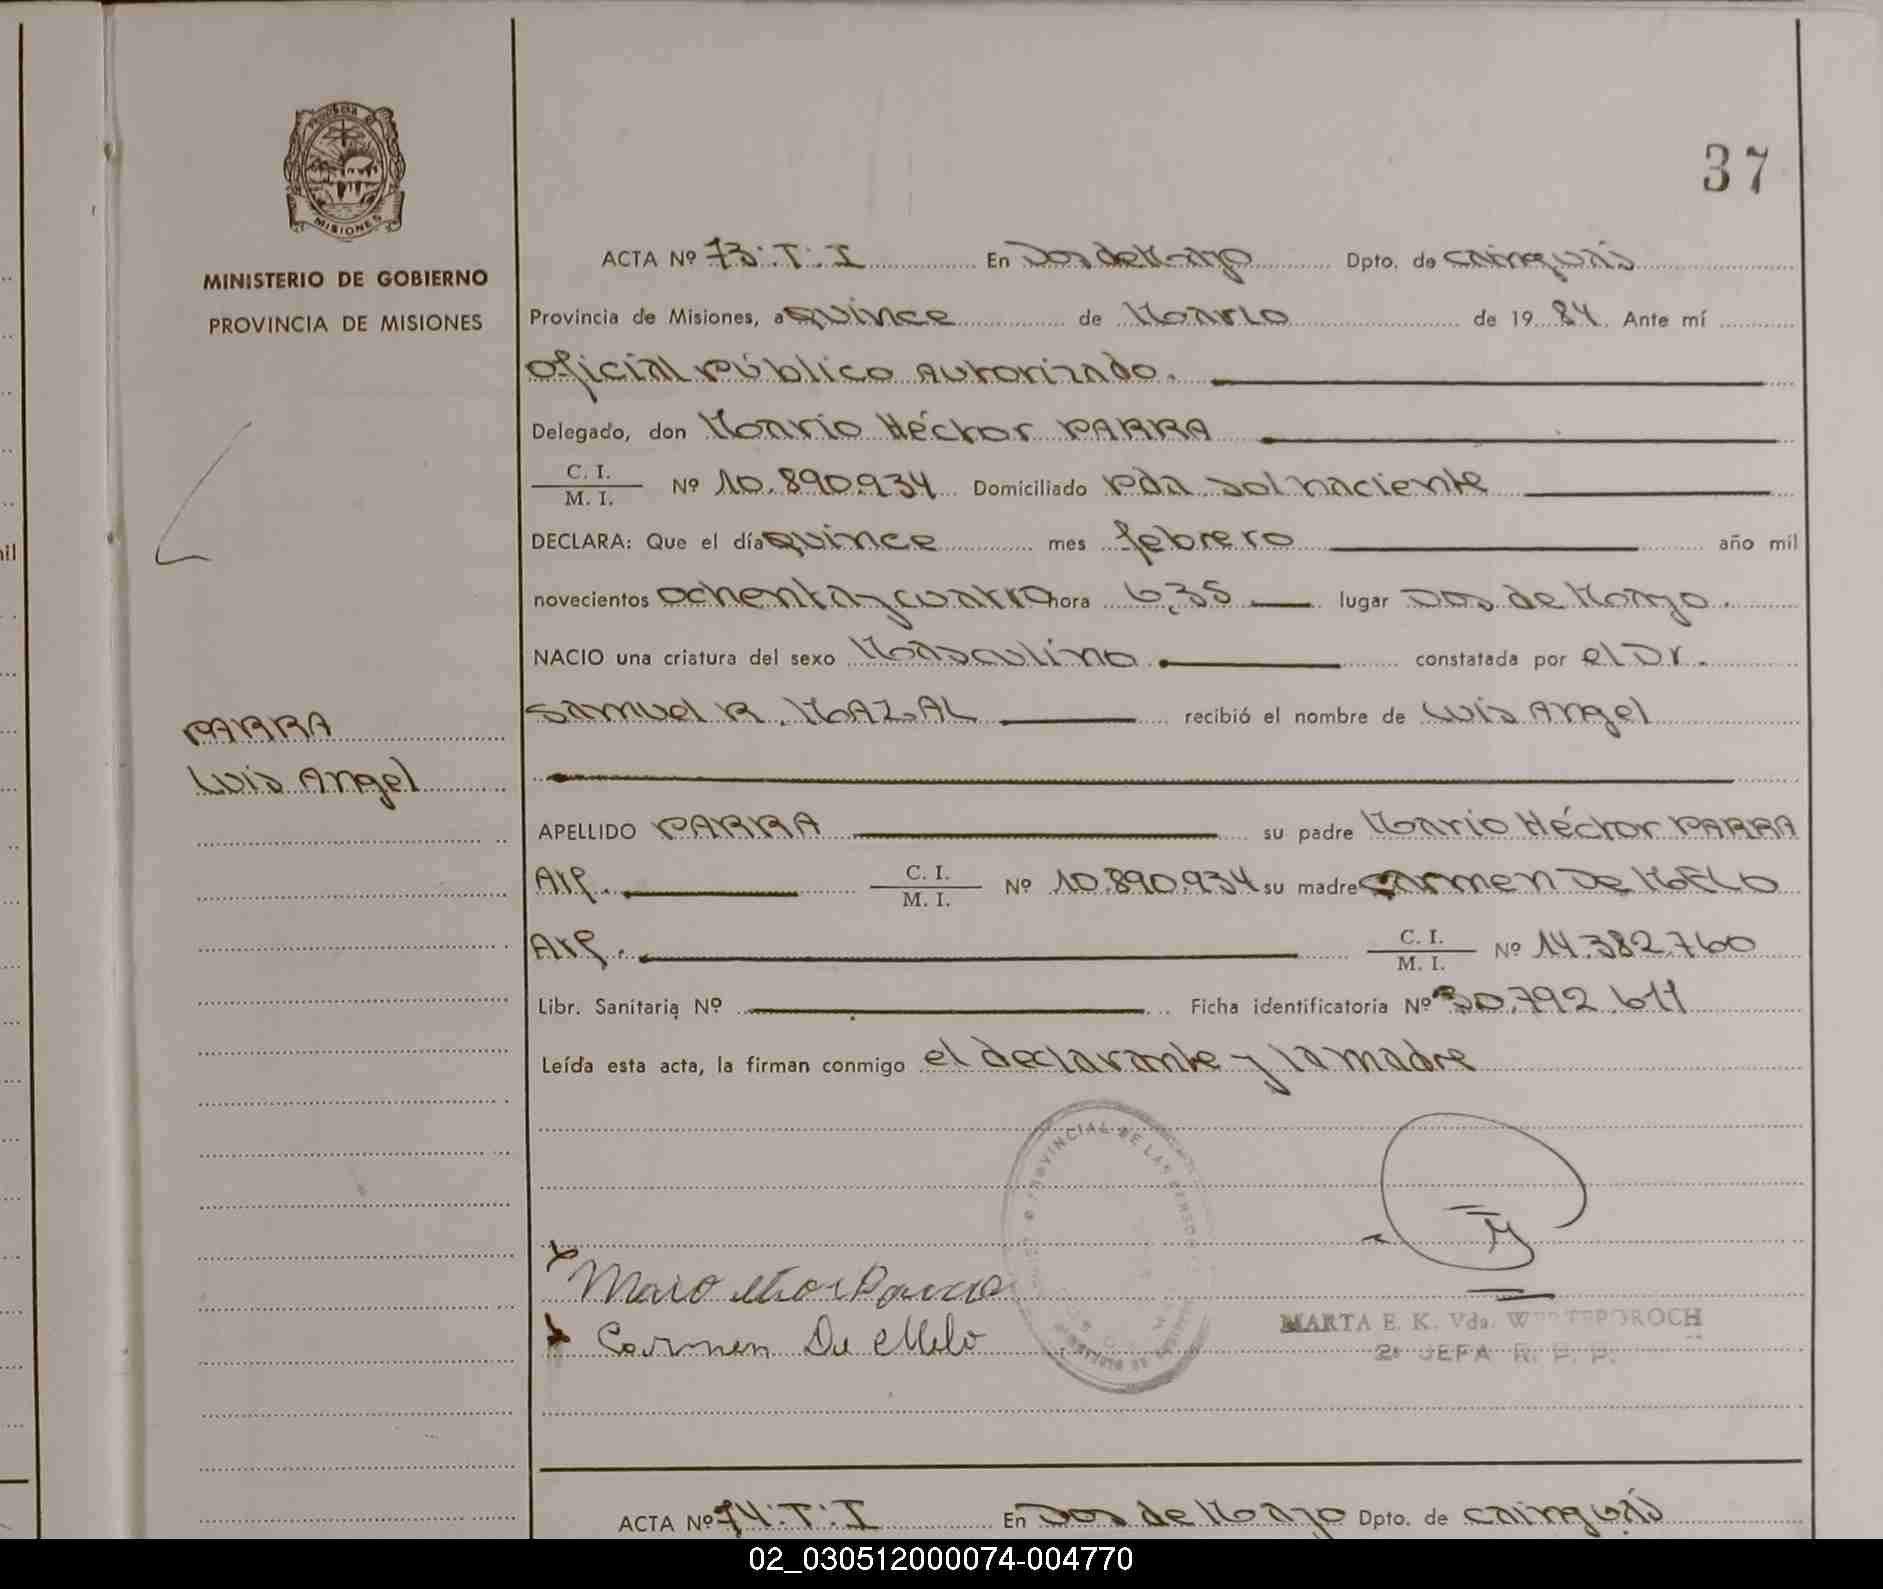 37
MISIONES
MINISTERIO DE GOBIERNO
PROVINCIA DE MISIONES
PARRA
Luis Angel
ACTA Nº 73·T·I En Dos de Mayo Dpto. de Cainguás
Provincia de Misiones, a quince de Marzo de 1984. Ante mí
Oficial Público Autorizado.
Delegado, don Mario Héctor PARRA
C. I.
M. I. Nº 10.890.934 Domiciliado Pda Sol naciente
DECLARA: Que el día quince mes febrero año mil
novecientos ochenta y cuatro hora 6,35 lugar Dos de Mayo.
NACIO una criatura del sexo Masculino constatada por el Dr.
Samuel R. MAZAL recibió el nombre de Luis Angel
APELLIDO PARRA su padre Mario Héctor PARRA
Arg. C. I.
M. I. Nº 10.890.934 su madre Carmen De MELO
Arg. C. I.
M. I. Nº 14.382.760
Libr. Sanitaria Nº Ficha identificatoria Nº 30.792.611
Leída esta acta, la firman conmigo el declarante y la madre
PROVINCIAL DE LAS
Carmen De Melo
MARTA E. K. Vda.
2ª JEFA R. P. P.
ACTA Nº 74·T·I En Dos de Mayo Dpto. de Cainguás
02_030512000074-004770